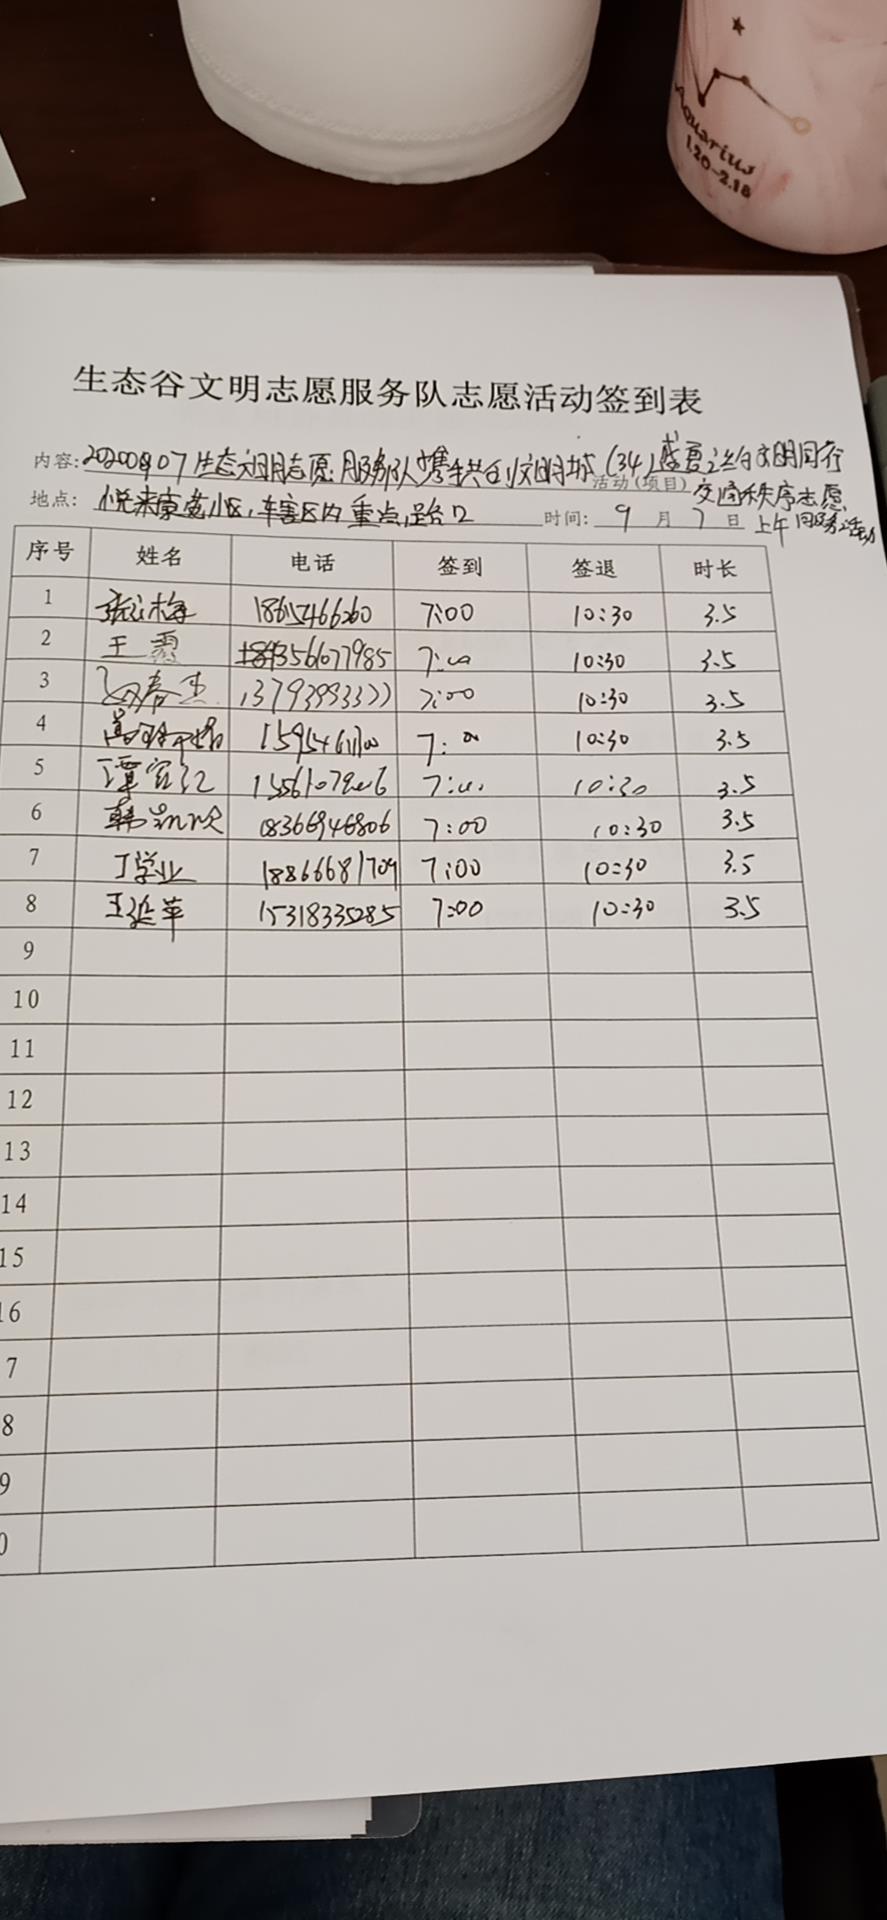 Aquarius
1.20-2.18
生态谷文明志愿服务队志愿活动签到表
内容: 20200907生态文明志愿服务队携手共创文明城(34)盛夏之约文明同行
活动(项目) 交通秩序志愿
服务活动
地点: 悦来 小区,车辖区内重点路口 时间: 9 月 7 日 上午
序号 姓名 电话 签到 签退 时长
1 梅 18615466260 7:00 10:30 3.5
2 王霞 13561077985 7:00 10:30 3.5
3 春 13793993377 7:00 10:30 3.5
4 7:00 10:30 3.5
5 谭 7:00 10:30 3.5
6 韩 18366946806 7:00 10:30 3.5
7 丁学业 18866681709 7:00 10:30 3.5
8 王延革 15318335285 7:00 10:30 3.5
9
10
11
12
13
14
15
16
7
8
9
0